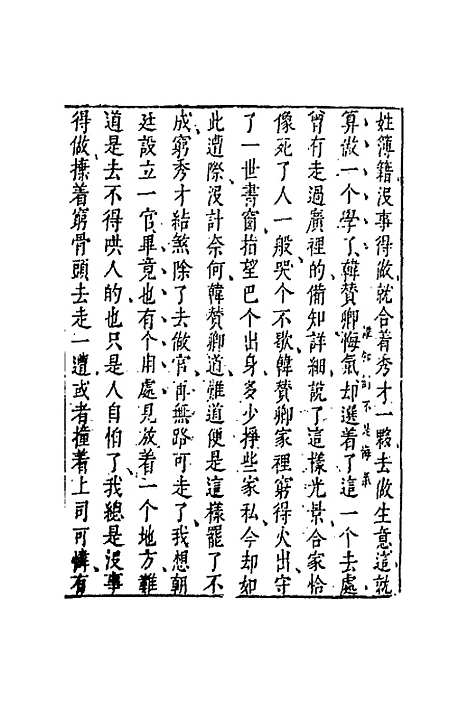 姓簿籍沒事得做就合着秀才一夥去做生意這就
算做一个學了韓贊卿悔氣却選着了這一个去處
誰知到不是悔氣
曾有走過廣裡的備知詳細說了這樣光景合家恰
像死了人一般哭个不歇韓贊卿家裡窮得火出守
了一世書窗指望巴个出身多少掙些家私今却如
此遭際沒計奈何韓贊卿道難道便是這樣罷了不
成窮秀才結煞除了去做官再無路可走了我想朝
廷設立一官畢竟也有个用處見放着一个地方難
道是去不得哄人的也只是人自怕了我總是沒事
得做𢵧着窮骨頭去走一遭或者撞着上司可憐有